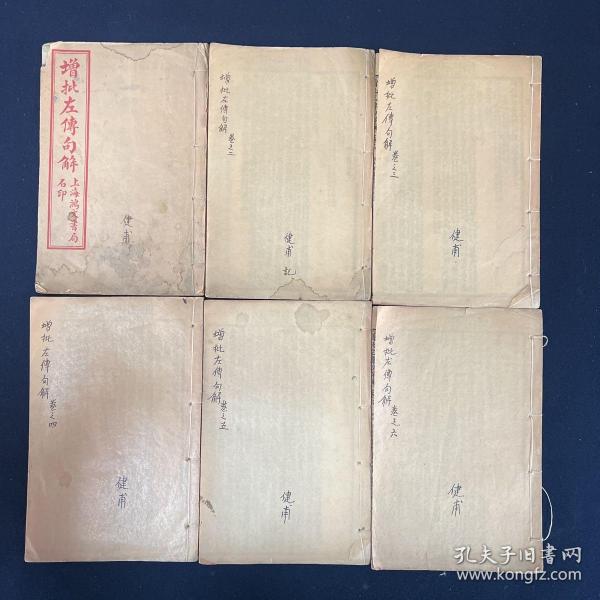 增批左傳句解
上海鴻文書局
石印
健甫
增批左傳句解
卷之二
健甫記
增批左傳句解
卷之三
健甫
增批左傳句解
卷之四
健甫
增批左傳句解
卷之五
健甫
增批左傳句解
卷之六
健甫
孔夫子旧书网
www.kongfz.com